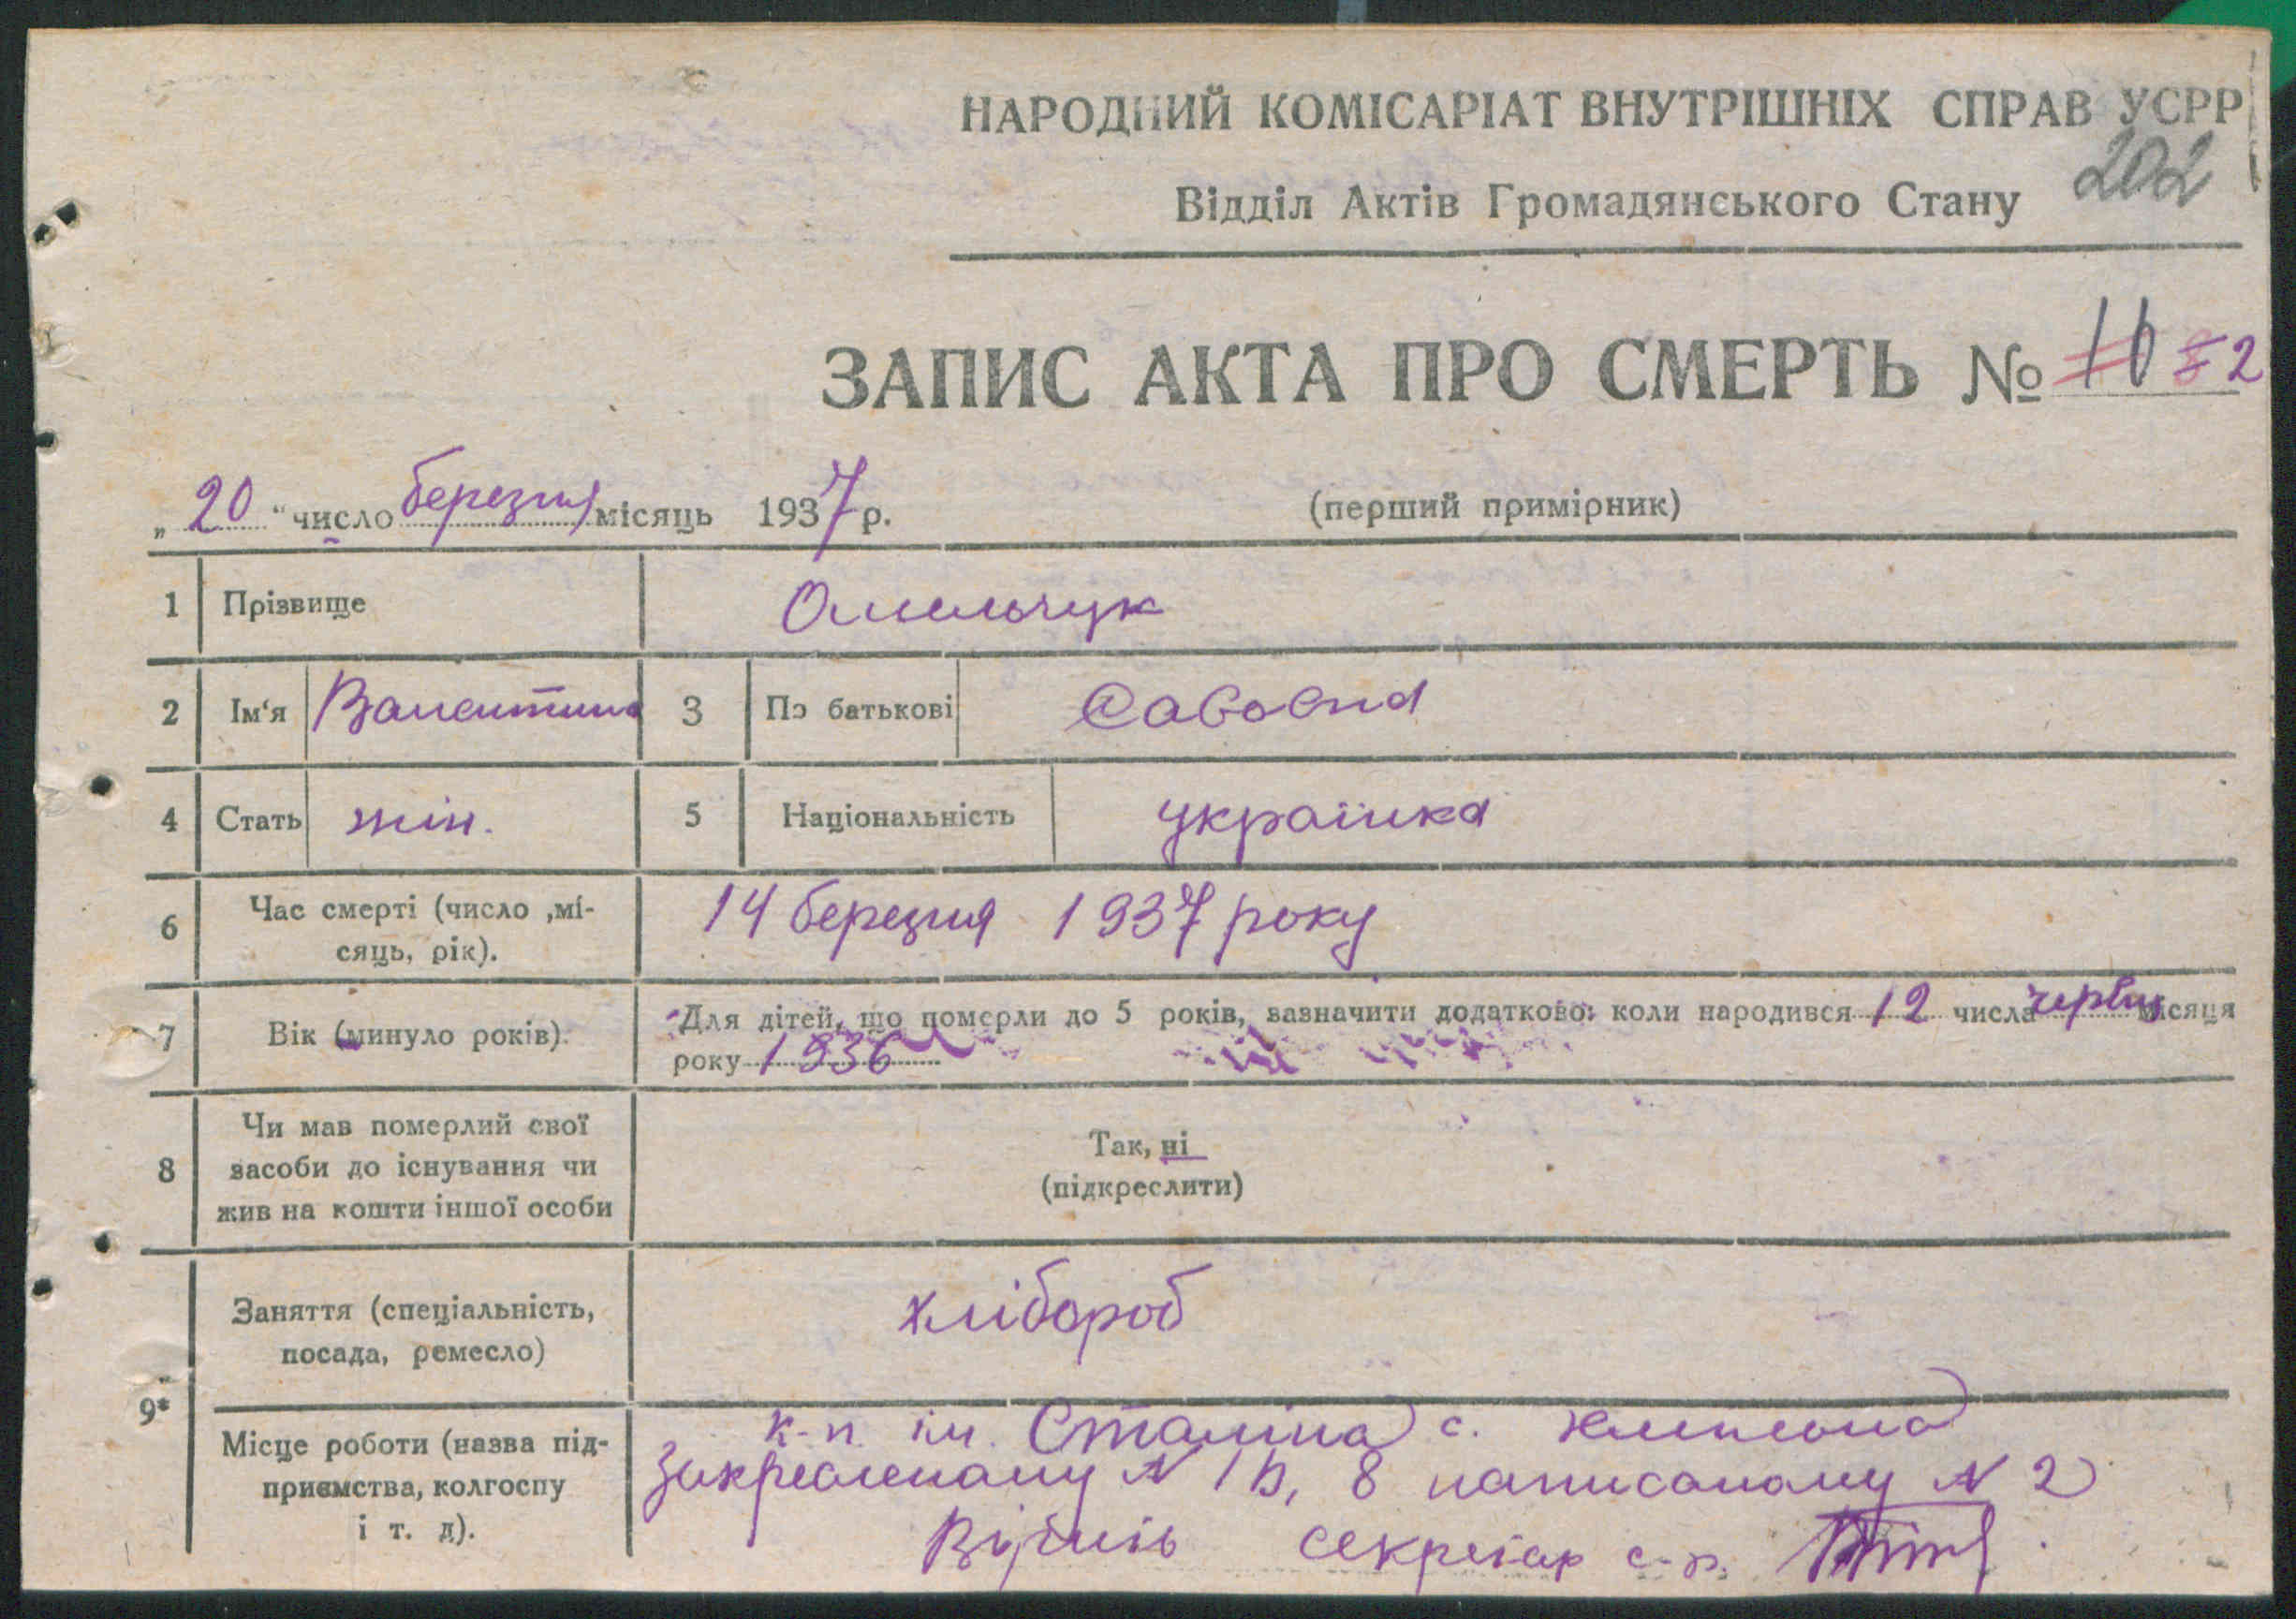 НАРОДНИЙ КОМІСАРІАТ ВНУТРІШНІХ СПРАВ УСРР
202
Відділ Актів Громадянського Стану
ЗАПИС АКТА ПРО СМЕРТЬ № 2
„20“ число березня місяць 1937 р. (перший примірник)
1 Прізвище Омельчук
2 Ім‘я Валентина 3 По батькові Савовна
4 Стать жін. 5 Національність українка
6 Час смерті (число ,мі-
сяць, рік). 14 березня 1937 року
7 Вік (минуло років). Для дітей, що померли до 5 років, зазначити додатково: коли народився 12 числа червня місяця
року 1936
8 Чи мав померлий свої
засоби до існування чи
жив на кошти іншої особи
Так, ні
(підкреслити)
9*
Заняття (спеціальність,
посада, ремесло) хлібороб
Місце роботи (назва під-
приємства, колгоспу
і т. д).
к-п ім. Сталіна с.
Закресленому N 8 написаному N 2
секретар с-р.